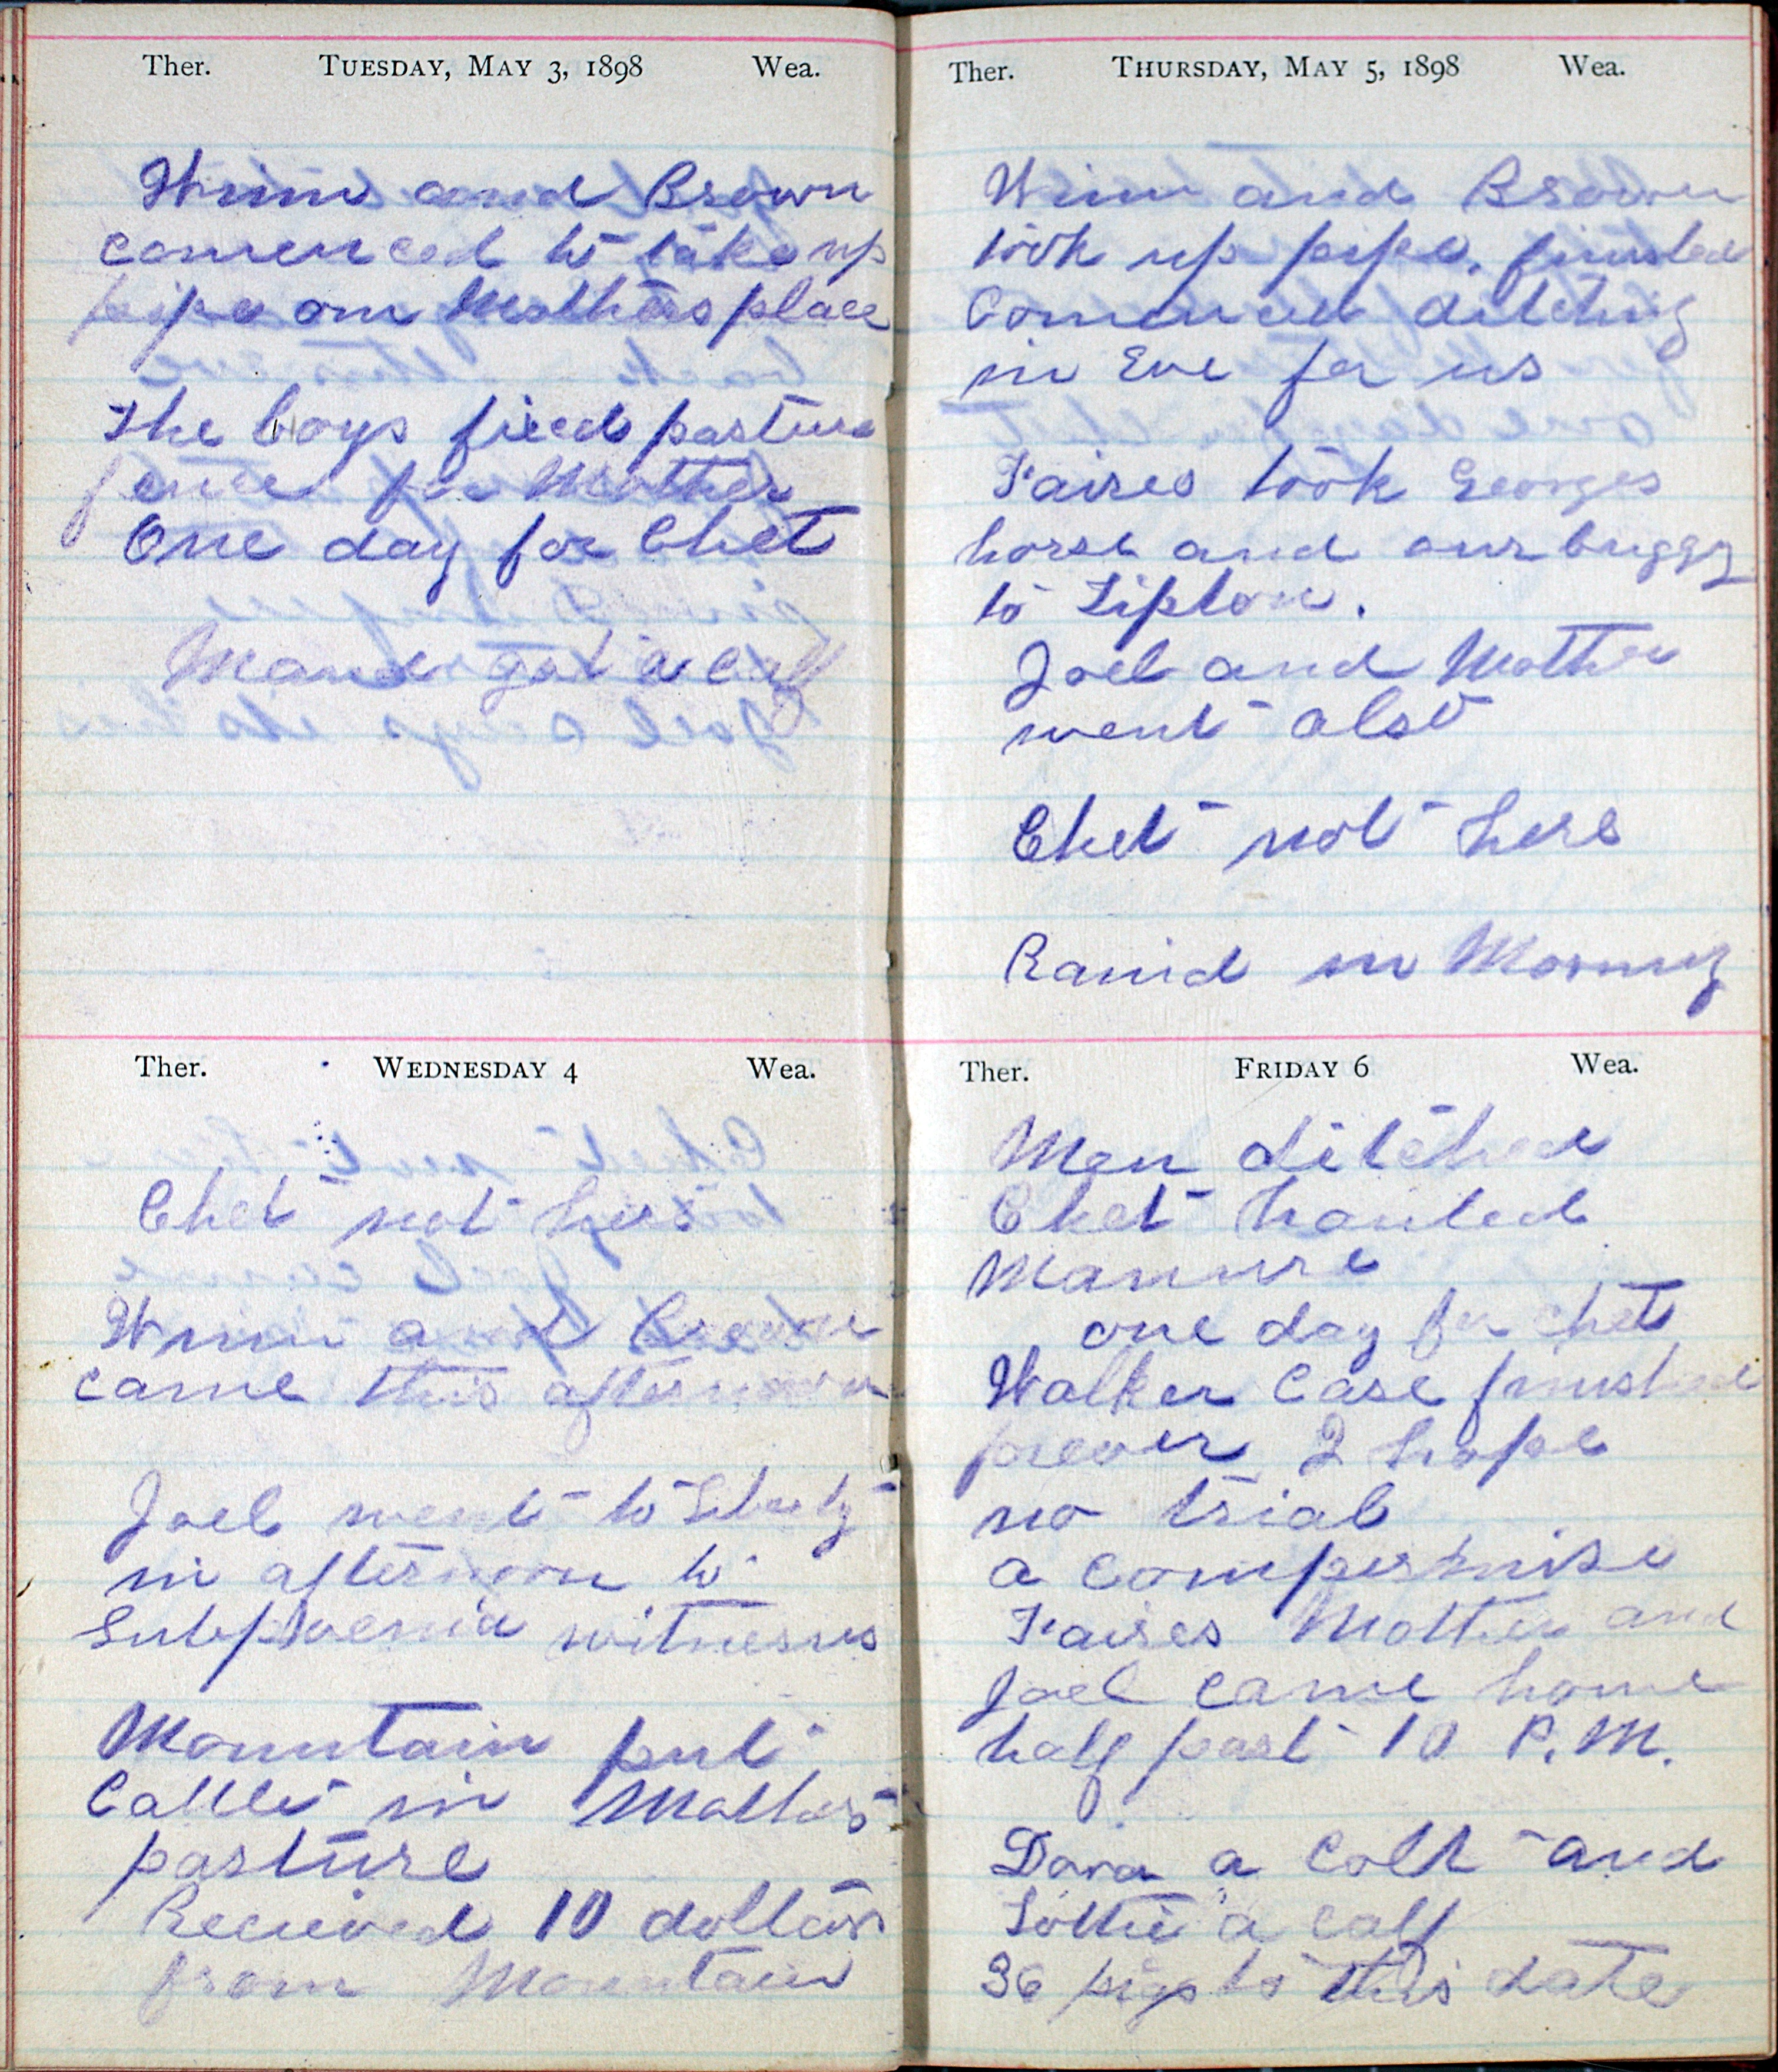 Ther. TUESDAY, MAY 3, 1898 Wea.
Winn and Brown
comenced to take up
pipe on Mothers place
The boys fixed pasture
fence for Mother
One day for Chet
Maud got a calf
Ther. WEDNESDAY 4 Wea.
Chet not here
Winn and Brown
came this afternoon
Joel went to Liberty
in afternoon to
Subpoenia witnesses
Mountain put
Cattle in Mothers
pasture
Recieved 10 dollars
from Mountain
Ther. THURSDAY, MAY 5, 1898 Wea.
Winn and Brown
took up pipe, finished
Comenced ditching
in Eve for us
Faires took Georges
horse and our buggy
to Tipton.
Joel and Mother
went also
Chet not here
Raind in Morning
Ther. FRIDAY 6 Wea.
Men ditched
Chet hauled
Manure
one day for Chet
Walker Case finished
I hope
no trial
a compermise
Faires Mother and
Joel came home
half past 10 P.M.
Dora a Colt and
Lottie a calf
36 pigs to this date